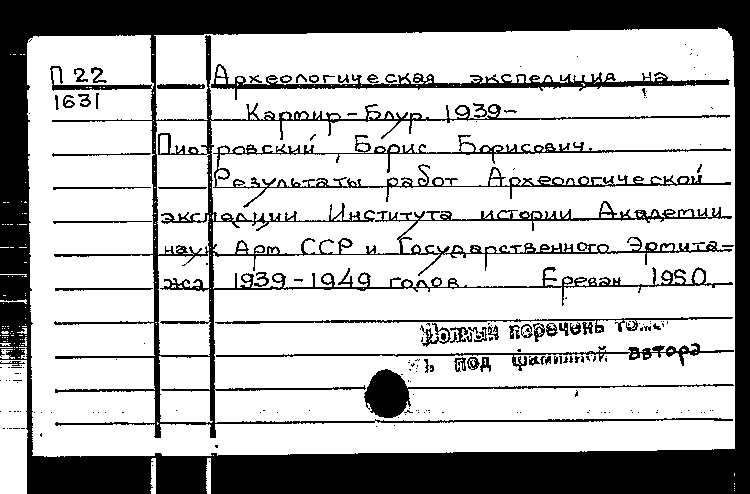 П 22 Археологическая экспедиция на
1631
Кармир-Блур. 1939-
Пиотровский, Борис Борисович.
Результаты работ Археологической
экспедиции Института истории Академии
наук Арм. ССР и Государственного Эрмита-
жа 1939-1949 годов. Ереван, 1950.
Полный перечень
под фамилией автора